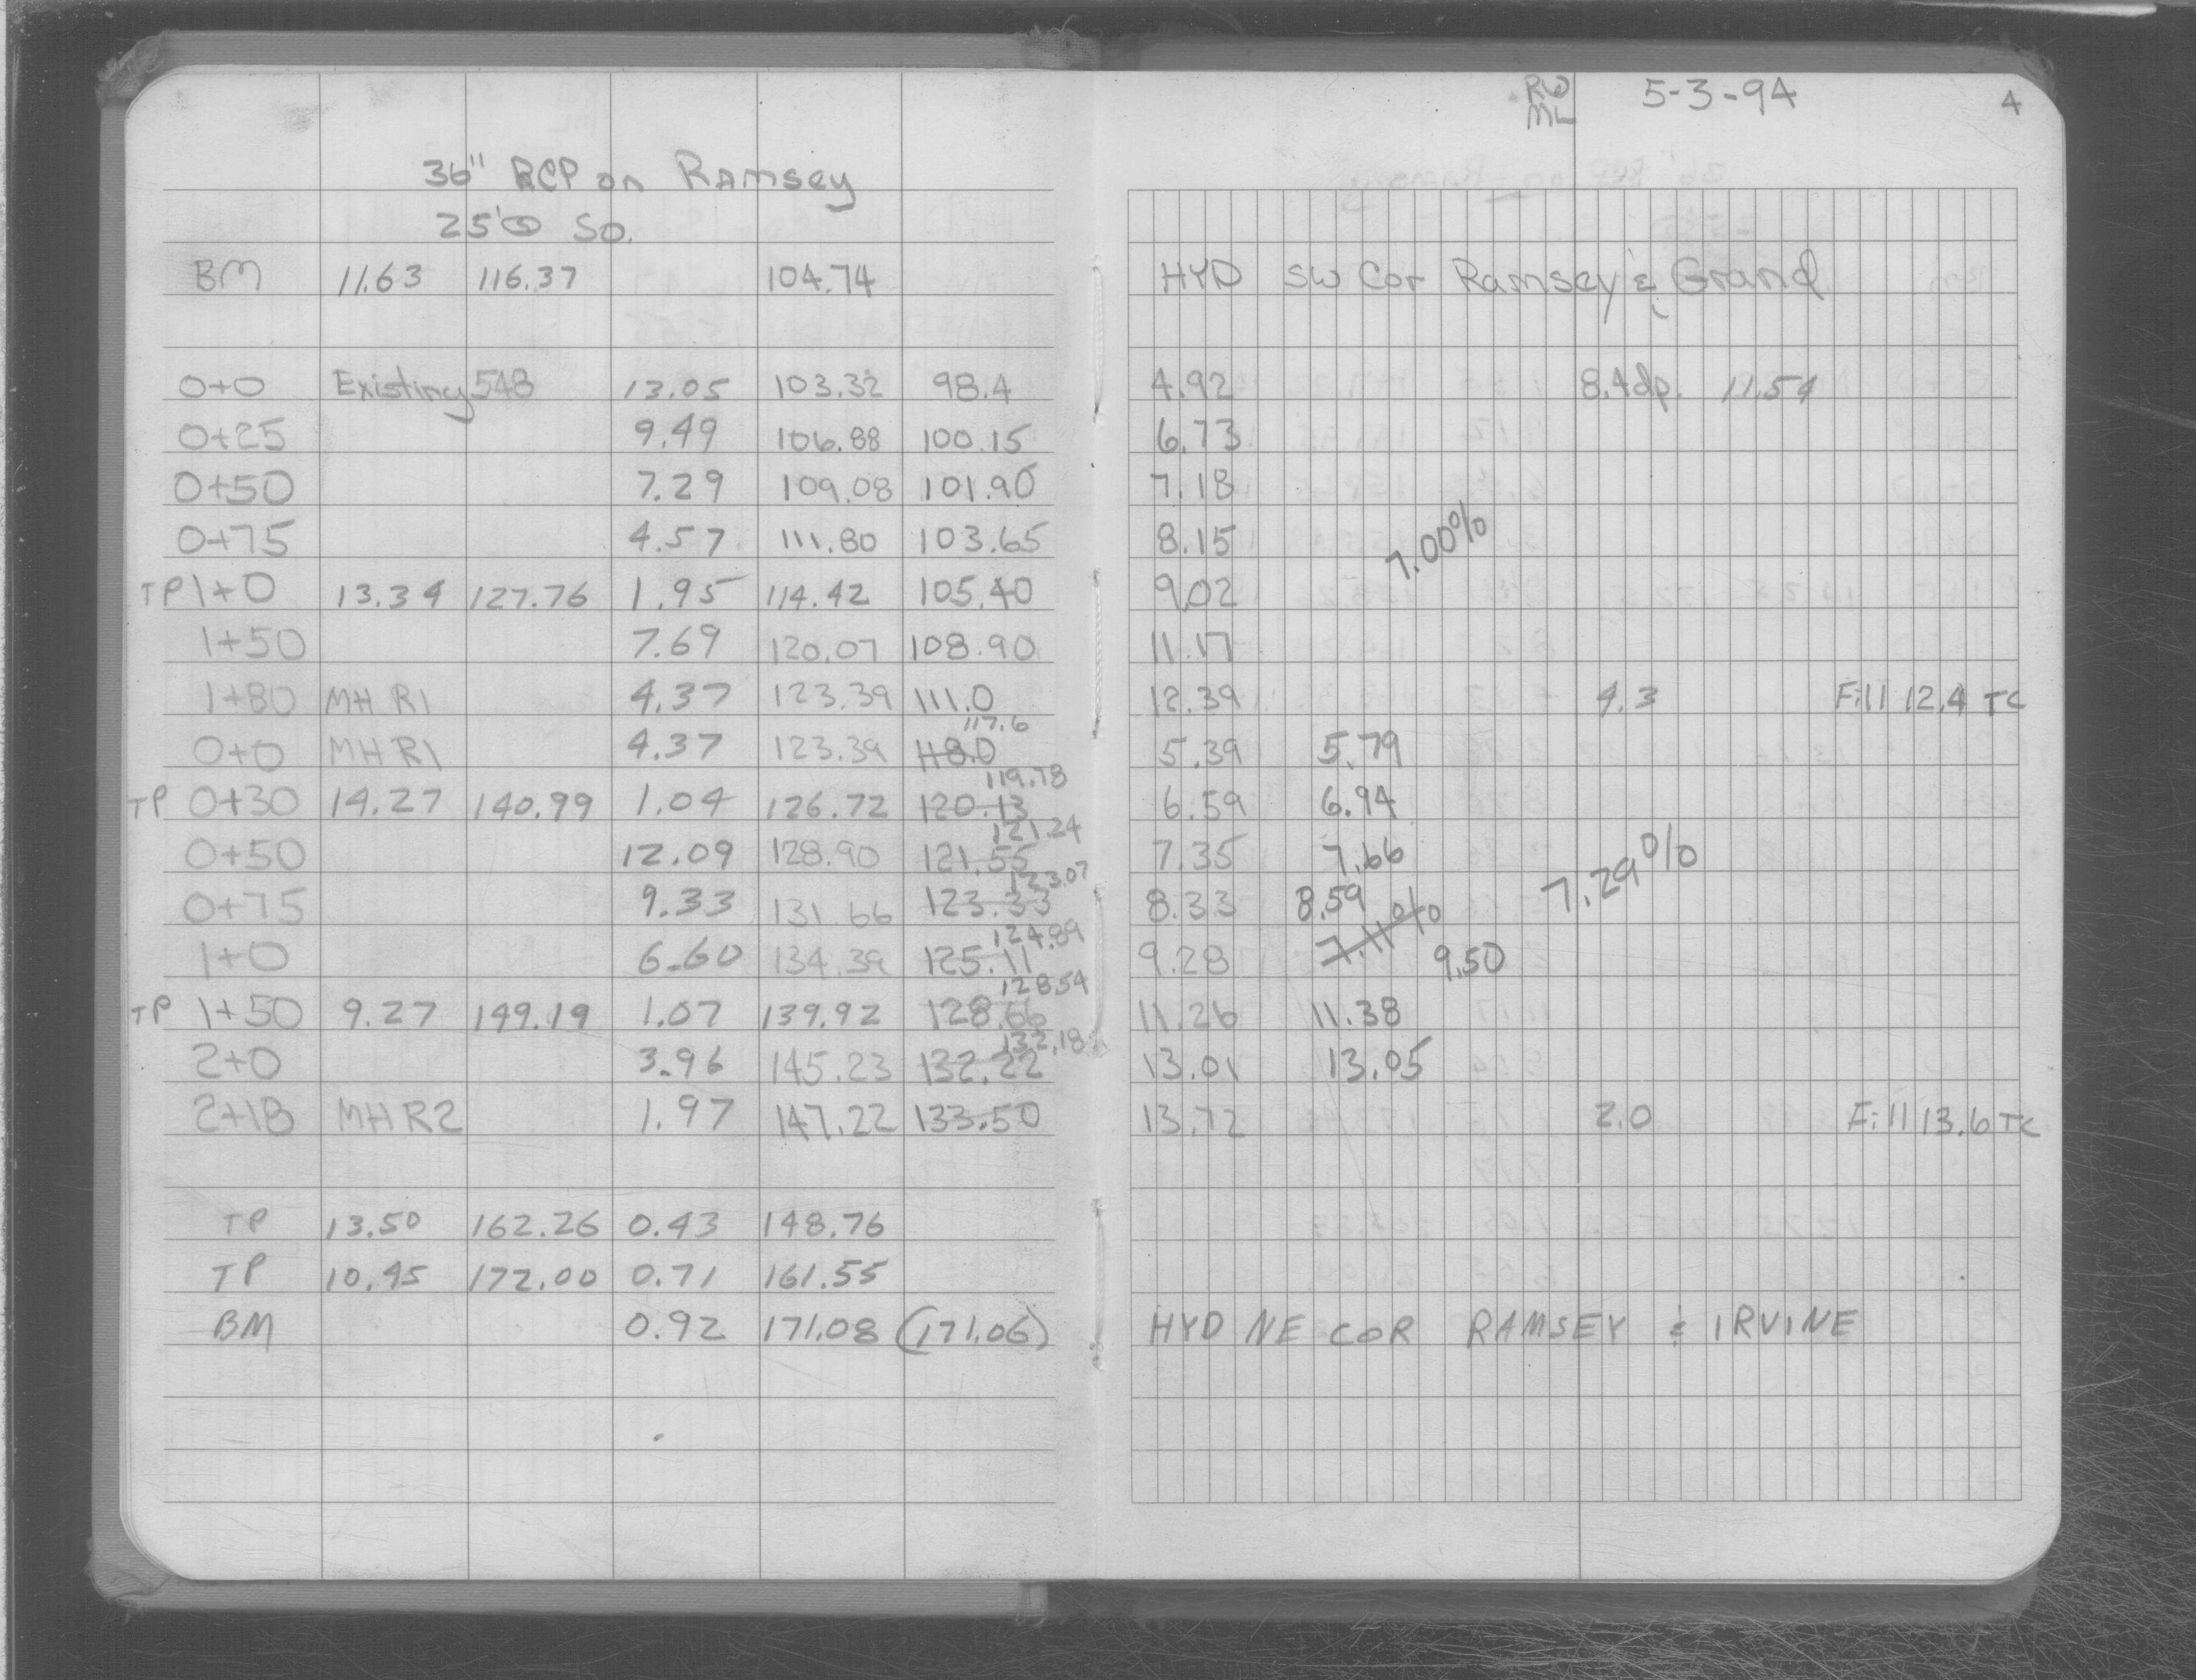 RW 5-3-94 4
ML
36" RCP on Ramsey
25' So.
BM 11.63 116.37 104.74 HYD SW Cor Ramsey & Grand
0+0 Existing 548 13.05 103.32 98.4 4.92 8.4dp. 11.54
0+25 9.49 106.88 100.15 6.73
0+50 7.29 109.08 101.90 7.18
0+75 4.57 111.80 103.65 8.15 7.00%
TP 1+0 13.34 127.76 1.95 114.42 105.40 9.02
1+50 7.69 120.07 108.90 11.17
1+80 MH R1 4.37 123.39 111.0 12.39 4.3 Fill 12.4 TC
117.6
0+0 MH R1 4.37 123.39 118.0 5.39 5.79
119.78
TP 0+30 14.27 140.99 1.04 126.72 120.13 6.59 6.94
121.24
0+50 12.09 128.90 121.55 7.35 7.66 7.29%
123.07
0+75 9.33 131.66 123.33 8.33 8.59
124.89
1+0 6.60 134.39 125.11 9.28 7.11% 9.50
128.54
TP 1+50 9.27 149.19 1.07 139.92 128.66 11.26 11.38
132.18
2+0 3.96 145.23 132.22 13.01 13.05
2+18 MH R2 1.97 147.22 133.50 13.72 2.0 Fill 13.6 TC
TP 13.50 162.26 0.43 148.76
TP 10.45 172.00 0.71 161.55
BM 0.92 171.08 (171.06) HYD NE COR RAMSEY & IRVINE